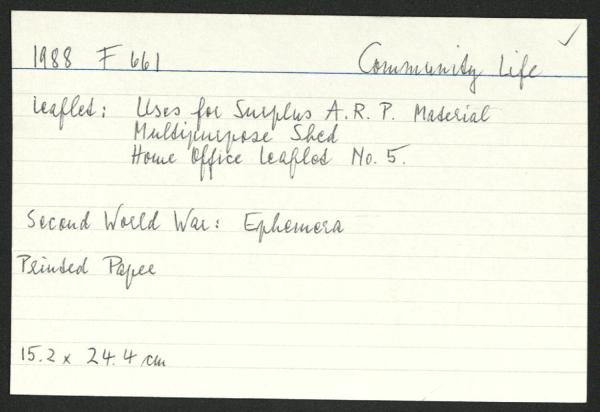 1988 F 661 Community Life
Leaflet: Uses for Surplus A.R.P. Material
Multipurpose Shed
Home Office Leaflet No. 5.
Second World War: Ephemera
Printed Paper
15.2 x 24.4 cm